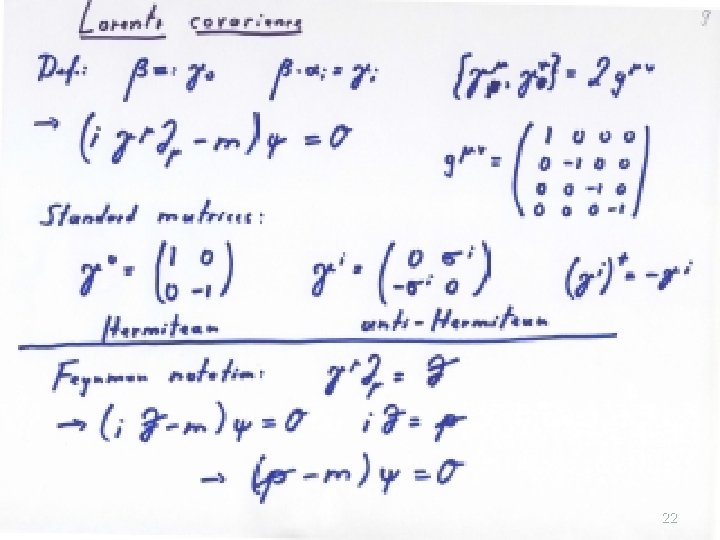 Lorentz covariance
9
Def.: β =: γ₀ β·αᵢ = γᵢ {γ^μ, γ^ν} = 2g^μν
→ (i γ^μ ∂_μ - m) ψ = 0
g^μν = ( 1 0 0 0
0 -1 0 0
0 0 -1 0
0 0 0 -1 )
Standard matrices:
γ⁰ = ( 1 0 γⁱ = ( 0 σⁱ (γⁱ)⁺ = -γⁱ
0 -1 ) -σⁱ 0 )
Hermitean anti-Hermitean
Feynman notation: γ^μ ∂_μ = ∂̸
→ (i ∂̸ - m) ψ = 0 i ∂̸ = p̸
→ (p̸ - m) ψ = 0
22